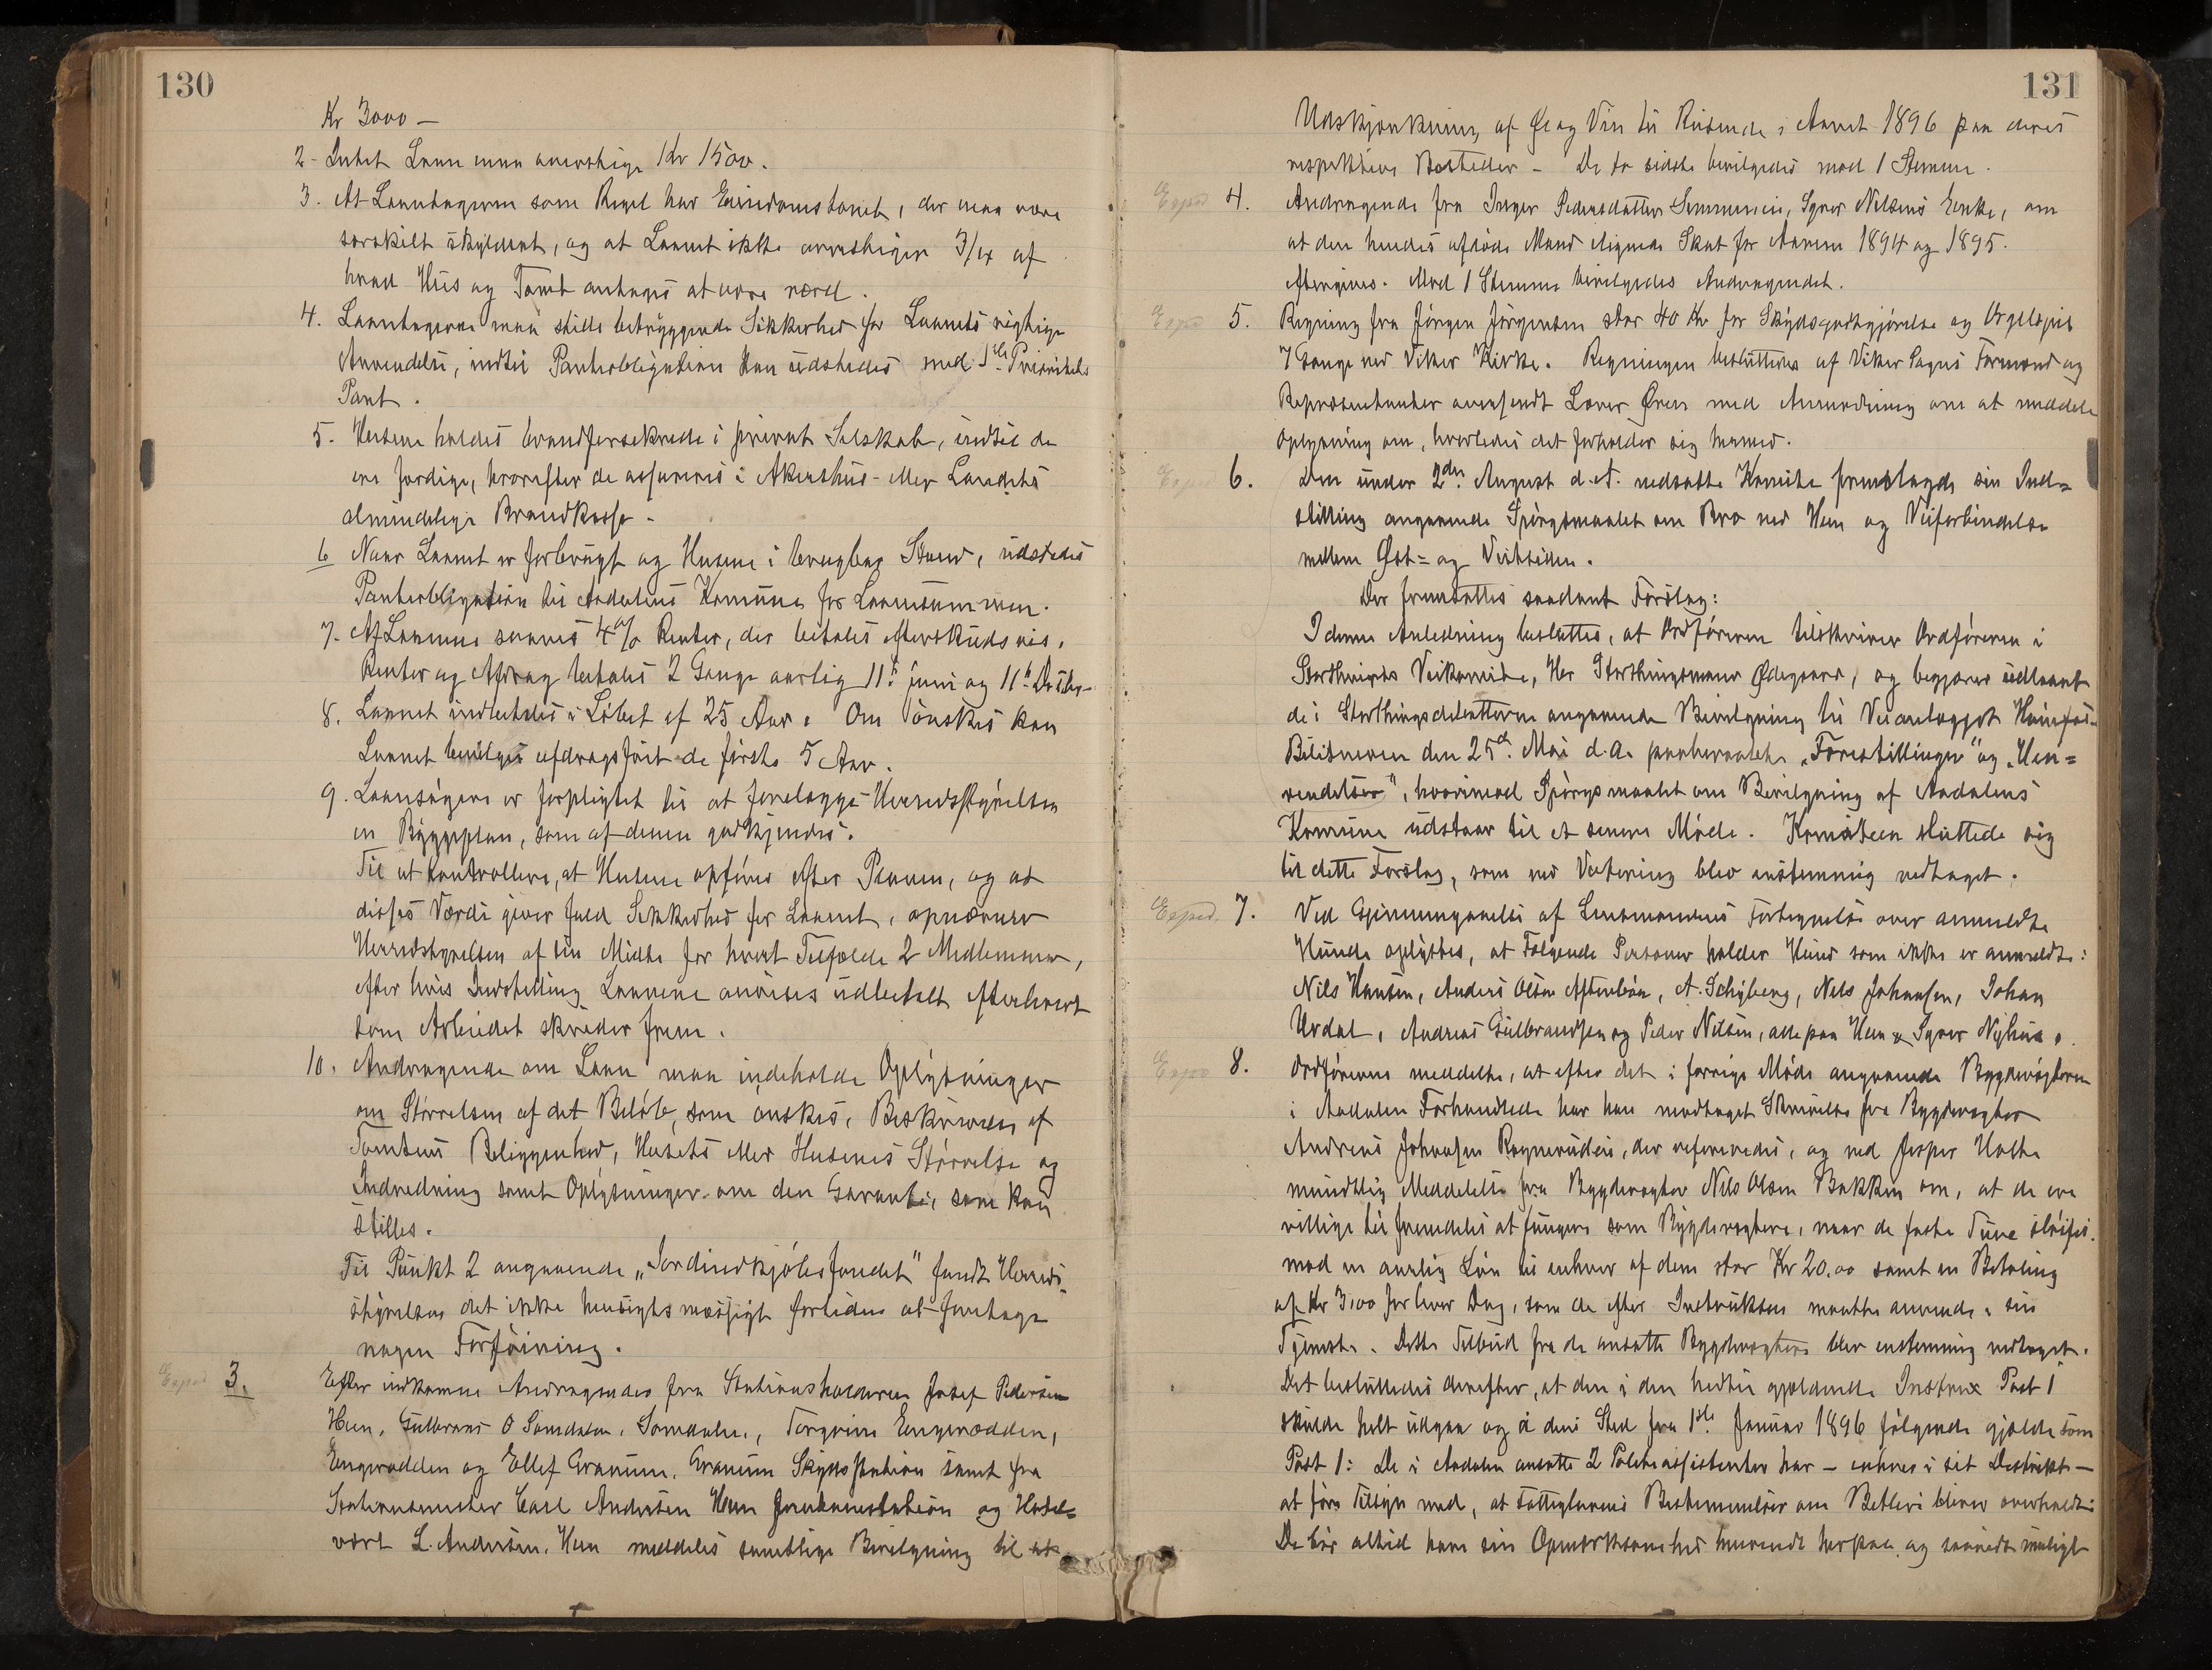 130
Kr 3000 —
2 - Intet Laan maa overstige Kr 1500.
3. At Laantageren som Regel har Eiendomstomt, der maa være
særskilt skyldsat, og at Laanet ikke overstiger 3/4 af
hvad Hus og Tomt antages at være værd.
4. Laantagerne maa stille betryggende Sikkerhed for Laanets rigtige
Anvendelse, indtil Panteobligation kan udstedes med 1ste Prioritets
Pant.
5. Husene holdes brandforsikrede i privat Selskab, indtil de
ere færdige, hvorefter de assureres i Akershus- eller Landets
almindelige Brandkasse.
6 Naar Laanet er forbrugt og Husene i brugbar Stand, udstedes
Panteobligation til Aadalens Komune for Laanesummen.
7. Af Laanene svares 4 % Renter, der betales efterskudsvis.
Renter og Afdrag betales 2 Gange aarlig 11te Juni og 11te Desbr.
8. Laanet indbetales i Løbet af 25 Aar. Om ønskes kan
Laanet bevilges afdragsfrit de første 5 Aar.
9. Laansøgere er forpligtet til at forelægge Herredsstyrelsen
en Byggeplan, som af denne godkjendes.
Til at kontrollere, at Husene opføres efter Planen, og at
disses Værdi giver fuld Sikkerhed for Laanet, opnævner
Herredstyrelsen af sin Midte for hvert Tilfælde 2 Medlemmer,
efter hvis Indstilling Laanene anvises udbetalt efterhvert
som Arbeidet skrider frem.
10. Andragende om Laan maa indeholde Oplysninger
om Størrelsen af det Beløb, som ønskes, Beskrivelse af
Tomtens Beliggenhed, Husets eller Husenes Størrelse og
Indredning samt Oplysninger om den Garanti, som kan
stilles.
Til Punkt 2 angaaende „Jordindkjøbsfondet" fandt Herreds-
styrelsen det ikke hensigtsmæssigt fortiden at foretage
nogen Forføining.
Exped 3. Efter indkomne Andragender fra Stationsholderne Josef Pedersen
Hen, Gulbrand O Somdalen, Somdalen, Torgrim Engerodden,
Engerodden og Ellef Granum, Granum Skydsstation samt fra
Stationsmester Carl Andersen Hen Jernbanestation og Hotel-
vært L. Andersen, Hen meddeles samtlige Bevilgning til at
131
Udskjænkning af Øl og Vin til Reisende i Aaret 1896 paa deres
respektive Bosteder - De to sidste bevilgedes mod 1 Stemme.
Exped 4. Andragende fra Inger Pedersdatter, Syver Nilsens Enke, om
at den hendes afdøde Mand lignede Skat for Aarene 1894 og 1895.
eftergives. Mod 1 Stemme bevilgedes Andragendet.
Exped 5. Regning fra Jørgen Jørgensen stor 40 Kr for Skydsgodtgjørelse og Orgelspil
7 Gange ved Viker Kirke. Regningen besluttedes af Viker Sogns Formænd og
Repræsentanter oversendt Lærer Øren med Anmodning om at meddele
Oplysning om, hvorledes det forholder sig hermed.
Exped 6. Den under 2den August d.A. nedsatte Komite fremlagde sin Ind=
stilling angaaende Spørgsmaalet om Bro ved Hen og Veiforbindelse
mellem Øst= og Vestsiden.
Der fremsattes saadant Forslag:
I denne Anledning besluttes, at Ordføreren tilskriver Ordføreren i
Storthingets Veikomite, Hr Storthingsmand Ødegaard, og begjærer udlaant
de i Storthingsdebatterne angaaende Bevilgning til Veianlægget Hønefos-
Bilitneven den 25de Mai d.a. paaberaabte „Forestillinger" og „Hen=
vendelser", hvorimod Spørgsmaalet om Bevilgning af Aadalens
Komune udstaar til et senere Møde. Komiteen sluttede sig
til dette Forslag, som ved Votering blev enstemmig vedtaget.
Exped. 7. Ved Gjennemgaaelse af Lensmandens Fortegnelse over anmeldte
Hunde oplystes, at Følgende Personer holder Hund som ikke er anmeldte:
Nils Hansen, Anders Olsen, A. Schjberg, Nils Johansen, Johan
Urdal, Andreas Gulbrandsen og Peder Nilsen, alle paa Hen & Syver Nyhus.
Exped 8. Ordføreren meddelte, at efter det i forrige Møde angaaende Bygdevægterne
i Aadalen Forhandlede har han modtaget Skrivelse fra Bygdevægter
Andreas Johnsen Ragnerudeie, der refereredes, og ved Jesper Holte
mundtlig Meddelelse fra Bygdevægter Nils Olsen Bakken om, at de ere
villige til fremdeles at fungere som Bygdevægtere, naar de faste Ture sløifes.
mod en aarlig Løn til enhver af dem stor Kr 20.00 samt en Betaling
af Kr 3,00 for hver Dag, som de efter Instruksen maatte anvende i sin
Tjeneste. Dette Tilbud fra de ansatte Bygdevægtere blev enstemmig vedtaget.
Det besluttedes derefter, at den i den hidtil gjældende Instrux Post 1
skulde helt udgaa og i dens Sted fra 1ste Januar 1896 følgende gjælde som
Post 1: De i Aadalen ansatte 2 Politiassistenter har - enhver i sit Distrikt -
at føre Tilsyn med, at Fattiglovens Bestemmelser om Betleri bliver overholdt.
De bør altid have sin Opmærksomhed henvendt herpaa, og saavidt muligt